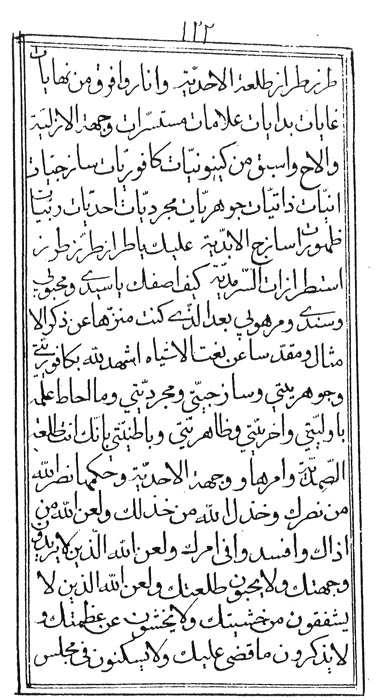 ١٢٢
طرز طراز طلعة الاحدية وانار وافرق من نهايات
غايات بدايات علامات مستسرات وجهة الازلية
والاح واسبق من كينونيات كافوريات سازجيات
انيات ذاتيات جوهريات مجرديات احديات ربيات
ظهورات سازج الابدية عليك يا طراز طرز طرز
استطرازات السرمدية كيف اصفك يا سيدي ومحبوبي
وسندي ومرهوبي بعد الذي كنت منزها عن ذكر الا
مثال ومقدسا عن نعت الاشياء اشهد لله بكافوريتي
وجوهريتي وسازجيتي ومجرديتي وما احاط علمه
باوليتي واخريتي وظاهريتي وباطنيتي بانك انت طلعة
الصمدية وامرها ووجهة الاحدية وحكمها نصر الله
من نصرك وخذل الله من خذلك ولعن الله من
اذاك وافسد وافى امرك ولعن الله الذين لا يريدون
وجهتك ولا يحبون طلعتك ولعن الله الذين لا
يشفقون من خشيتك ولا يخشون عن عظمتك و
لا يذكرون ما قضى عليك ولا يسكنون في مجلس